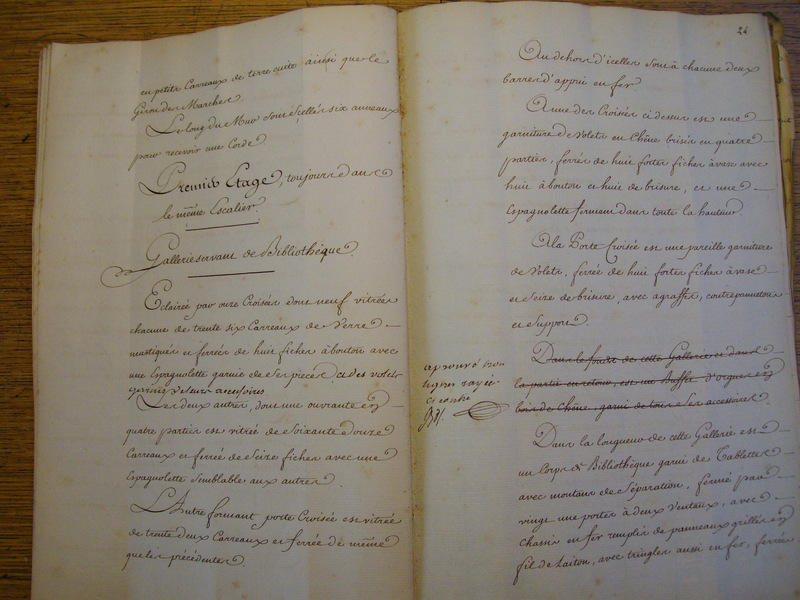 en petits Carreaux de terre cuite ainsi que le
Giron des Marches.
Le long du Mur sont scellés six anneaux
pour recevoir une Corde
Premier Etage, toujours dans
le même Escalier.
Gallerie servant de Bibliothèque.
Eclairée par onze Croisées dont neuf vitrées
chacune de trente six Carreaux de Verre
mastiqués et ferrées de huit fiches à bouton avec
une Espagnolette garnie de ses pieces et des volets
Les deux autres, dont une ouvrante en
quatre parties est vitrée de soixante douze
Carreaux et ferrée de seize fiches avec une
Espagnolette semblable aux autres.
L'Autre formant porte Croisée est vitrée
de trente deux Carreaux et ferrée de même
que les précédentes.
24
Au dehors d'icelles sont à chacune deux
barres d'appui en fer
A une des Croisées ci dessus est une
garniture de Volets en Chêne brisés en quatre
parties, ferrés de huit fortes fiches à vase avec
huit à bouton et huit de brisure, et une
Espagnolette fermant dans toute la hauteur
A la Porte Croisée est une pareille garniture
de Volets, ferrée de huit fortes fiches à vase
et seize de brisure, avec agraffes, contrepannetons
et Support.
Dans le fond de cette Gallerie et dans
la partie en retour, est un Buffet d'orgues en
bois de Chêne, garni de tous ses accessoires.
approuvé trois
lignes rayées
ci contre
Dans la longueur de cette Gallerie est
un Corps de Bibliothèque garni de Tablettes
avec montans de séparation, fermé par
vingt une portes à deux Ventaux, avec
chassis en fer remplis de panneaux grillés en
fil de Laiton, avec tringles aussi en fer, ferrées